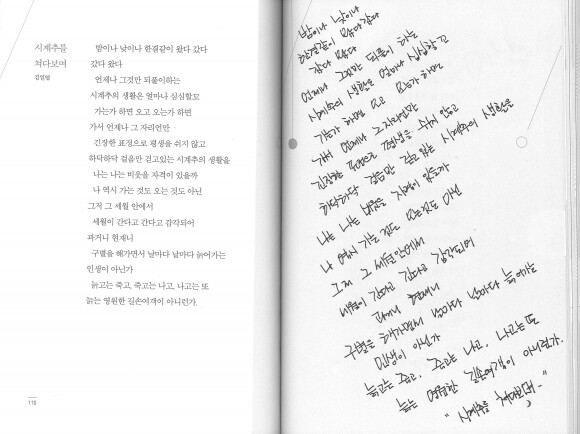 시계추를
쳐다보며
김일엽
밤이나 낮이나 한결같이 왔다 갔다
갔다 왔다
언제나 그것만 되풀이하는
시계추의 생활은 얼마나 심심할꼬
가는가 하면 오고 오는가 하면
가서 언제나 그 자리언만
긴장한 표정으로 평생을 쉬지 않고
하닥하닥 걸음만 걷고있는 시계추의 생활을
나는 나는 비웃을 자격이 있을까
나 역시 가는 것도 오는 것도 아닌
그저 그 세월 안에서
세월이 간다고 간다고 감각되어
과거니 현재니
구별을 해가면서 날마다 날마다 늙어가는
인생이 아닌가
늙고는 죽고, 죽고는 나고, 나고는 또
늙는 영원한 길손여객이 아니런가.
118
밤이나 낮이나
한결같이 왔다갔다
갔다 왔다
언제나 그것만 되풀이 하는
시계추의 생활은 얼마나 심심할꼬
가는가 하면 오고 오는가 하면
가서 언제나 그 자리언만
긴장한 표정으로 평생을 쉬지 않고
하닥하닥 걸음만 걷고 있는 시계추의 생활을
나는 나는 비웃을 자격이 있을까
나 역시 가는 것도 오는 것도 아닌
그저 그 세월안에서
세월이 간다고 간다고 감각되어
과거니 현재니
구별을 해가면서 날마다 날마다 늙어가는
인생이 아닌가
늙고는 죽고, 죽고는 나고, 나고는 또
늙는 영원한 길손여객이 아니런가.
" 시계추를 쳐다보며 "